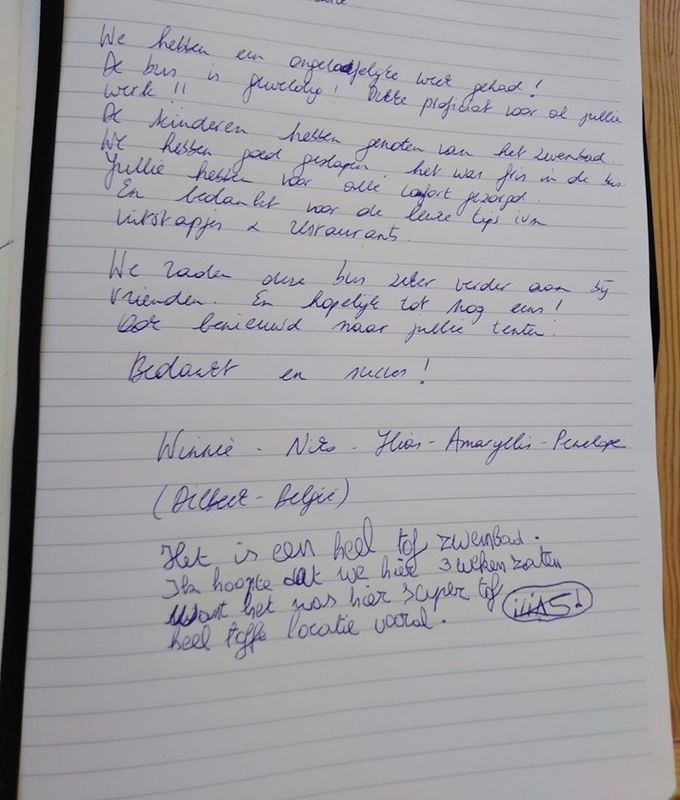 We hebben een ongelooflijke week gehad!
De bus is geweldig! Dikke proficiat voor al jullie
werk!!
De kinderen hebben genoten van het zwembad.
We hebben goed geslapen, het was fris in de bus.
Jullie hebben voor alle comfort gezorgd.
En bedankt voor de leuke tips ivm
uitstapjes & restaurants.
We raden deze bus zeker verder aan bij
vrienden. En hopelijk tot nog eens!
Ook benieuwd naar jullie tenten!
Bedankt en succes!
Winnie - Niko - Ilias - Amaryllis - Penelope
(Dilbeek - België)
Het is een heel tof zwembad.
Ik hoopte dat we hier 3 weken zaten
Want het was hier super tof
heel toffe locatie vooral.
iliAS!